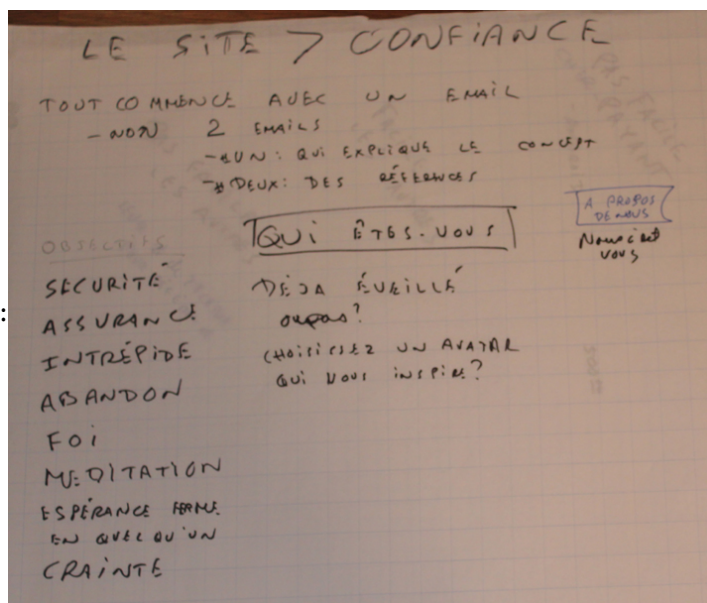 LE SITE > CONFIANCE
TOUT COMMENCE AVEC UN EMAIL
- NON 2 EMAILS
- #UN: QUI EXPLIQUE LE CONCEPT
- #DEUX: DES RÉFÉRENCES
A PROPOS
DE NOUS
Nous c'est
vous
QUI ÊTES-VOUS
OBJECTIFS
SÉCURITÉ
ASSURANCE
INTRÉPIDE
ABANDON
FOI
MÉDITATION
ESPÉRANCE FERME
EN QUELQU'UN
CRAINTE
DÉJA ÉVEILLÉ
ou pas?
CHOISISSEZ UN AVATAR
QUI VOUS INSPIRE?
: